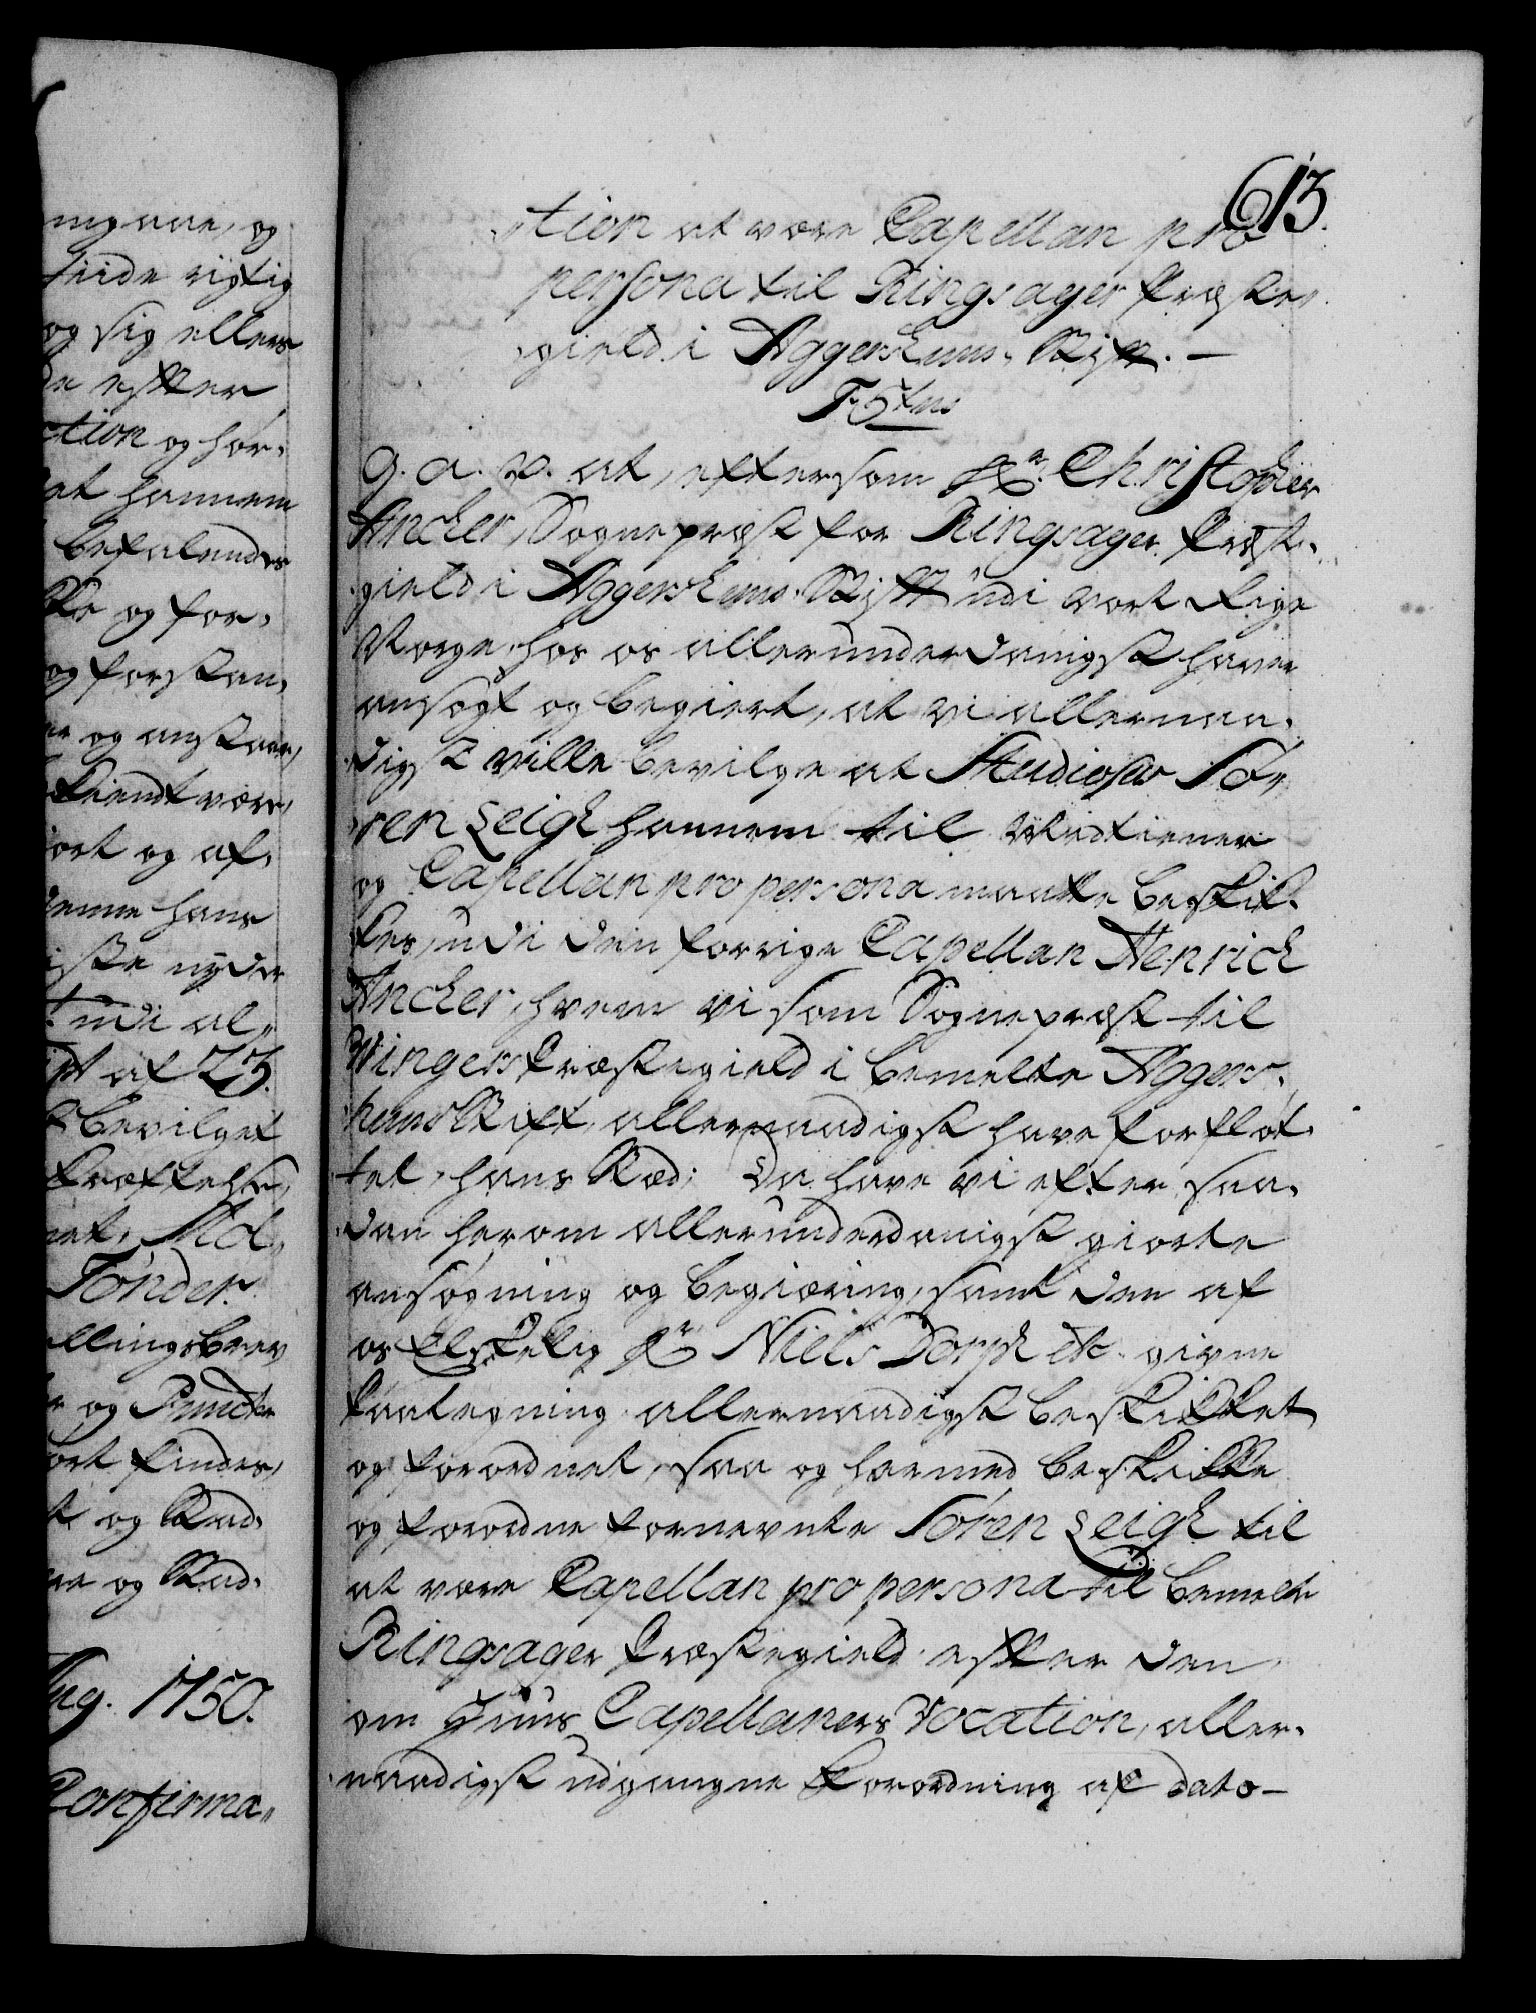 613.
tion at være Capellan pro
persona til Ringsager Præste
gield i Aggershuus Stift.
F 5tus
G. a. v. at, eftersom Hr. Christopher
Ancher, Sognepræst for Ringsager Præste
gield i Aggershuus Stift udi vort Rige
Norge, hos os allerunderdanigst haver
ansøgt og begiert, at vi allernaa-
digst ville bevilge at Studiosus Sø-
ren Leigh hannem til Medtiener
og Capellan pro persona maatte beskik-
kes, udi den forrige Capellan Henrich
Ancher, hvem vi som Sognepræst til
Wingers Præstegield i bemelte Aggers-
huus Stift, allernaadigst have forflöt-
tet, hans Stæd; Da have vi efter saa-
dan herom allerunderdanigst giorte
ansøgning og begiæring, samt den af
os Elskelig Hr Niels Dorph etc. givne
Paategning allernaadigst beskikket
og forordnet, saa og hermed beskikke
og forordne fornevnte Søren Leigh til
at være Capellan pro persona til bemelte
Ringsager Præstegield efter den
om Huus Capellaners Vocation, aller-
naadigst udgangne Forordning af dato
mgaae, og
rigtig
og sig ellers
efter
ction og hør-
at hannem
befalendes
og for-
og forstan-
og anstaaer,
kiendt være,
iort og af-
denne hans
nyder
udi al-
af 23.
bevilget
kræftelse,
Tönder.
allingsbrev
og Puncter
iort findes,
og Stad-
og Stad-
Aug. 1750.
Confirma-